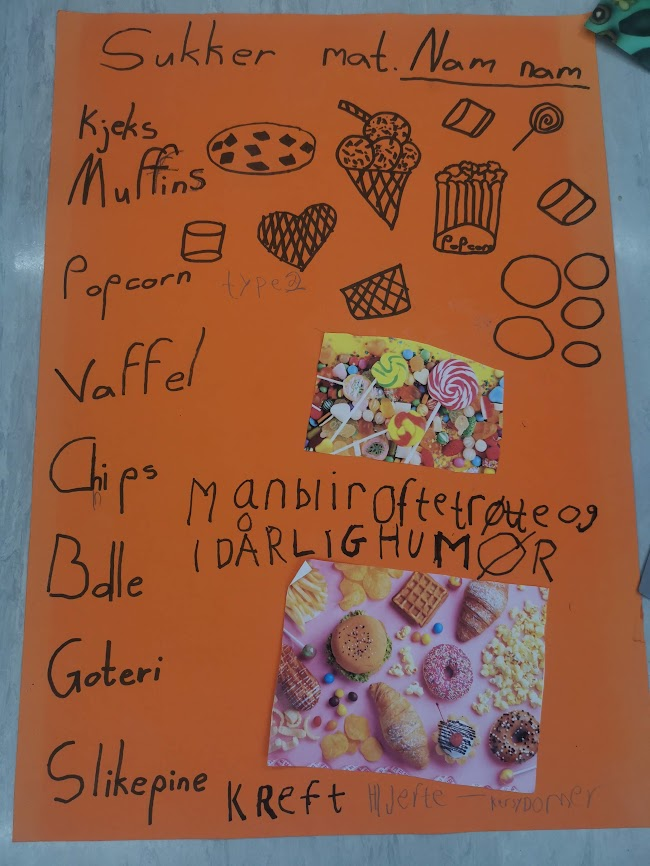 Sukker mat. Nam nam
Kjeks
Muffins
Popcorn
Popcorn
type2
Vaffel
Chips
Man blir ofte trøtte og
I DÅRLIG HUMØR
Bolle
Goteri
Slikepine
KReft Hjerte —